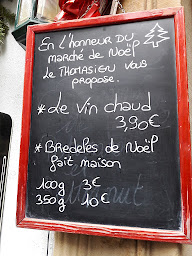 En l'honneur du
marché de Noël
le Thomasien vous
propose.
* Le vin chaud
3,90€
* Bredeles de Noël
fait maison
100g 3€
350g 10€